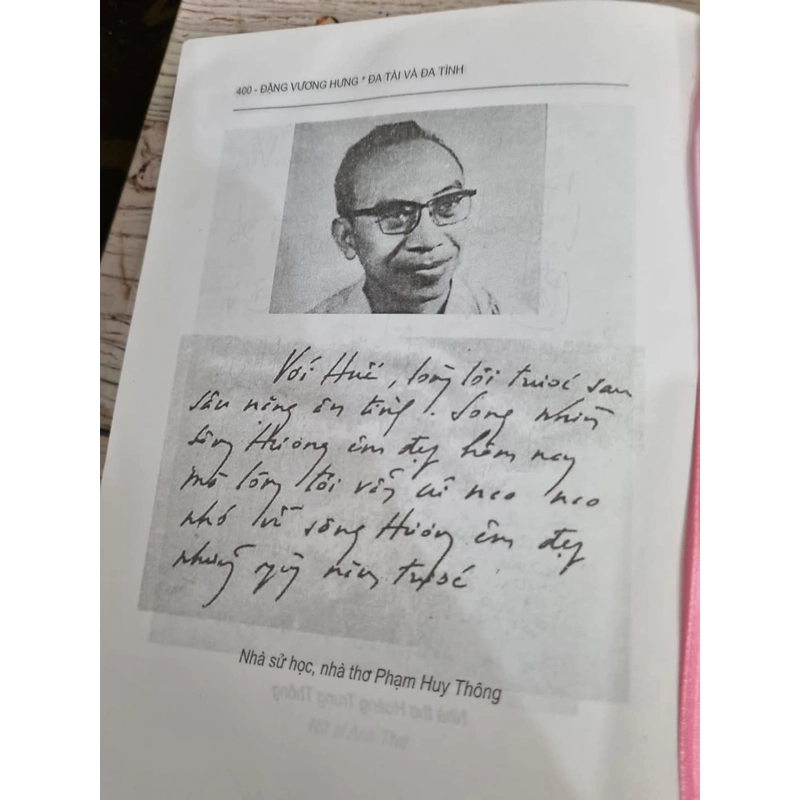 400 - ĐẶNG VƯƠNG HƯNG * ĐA TÀI VÀ ĐA TÌNH
Với Huế, lòng tôi trước sau
sâu nặng ân tình. Song nhìn
sông Hương êm đẹp hôm nay
mà lòng tôi vẫn cứ neo neo
nhớ về sông Hương êm đẹp
những ngày năm trước
Nhà sử học, nhà thơ Phạm Huy Thông
Nhà thơ Hoàng Trung Thông